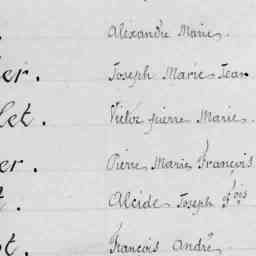 Alexandre Marie.
er. Joseph Marie Jean
let. Victor pierre Marie.
er. Pierre Marie François
t. Alcide Joseph fçois
t. François André